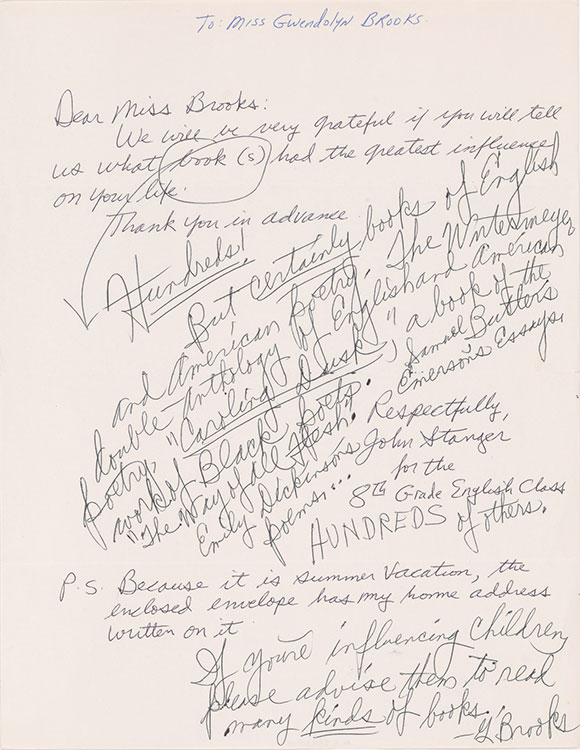 To: Miss Gwendolyn Brooks.
Dear Miss Brooks:
We will be very grateful if you will tell
us what book(s) had the greatest influence
on your life.
Thank you in advance
Hundreds!
But certainly books of English
and American poetry. The Wintermeyer
double anthology of English and American
poetry, "Caroling Dusk," a book of the
work of Black poets. Samuel Butler's
"The Way of All Flesh." Emerson's Essays.
Emily Dickinson's
poems...
Respectfully,
John Stanger
for the
8th Grade English Class
HUNDREDS of others.
P.S. Because it is summer vacation, the
enclosed envelope has my home address
written on it
If you're influencing children,
please advise them to read
many kinds of books.
—G. Brooks